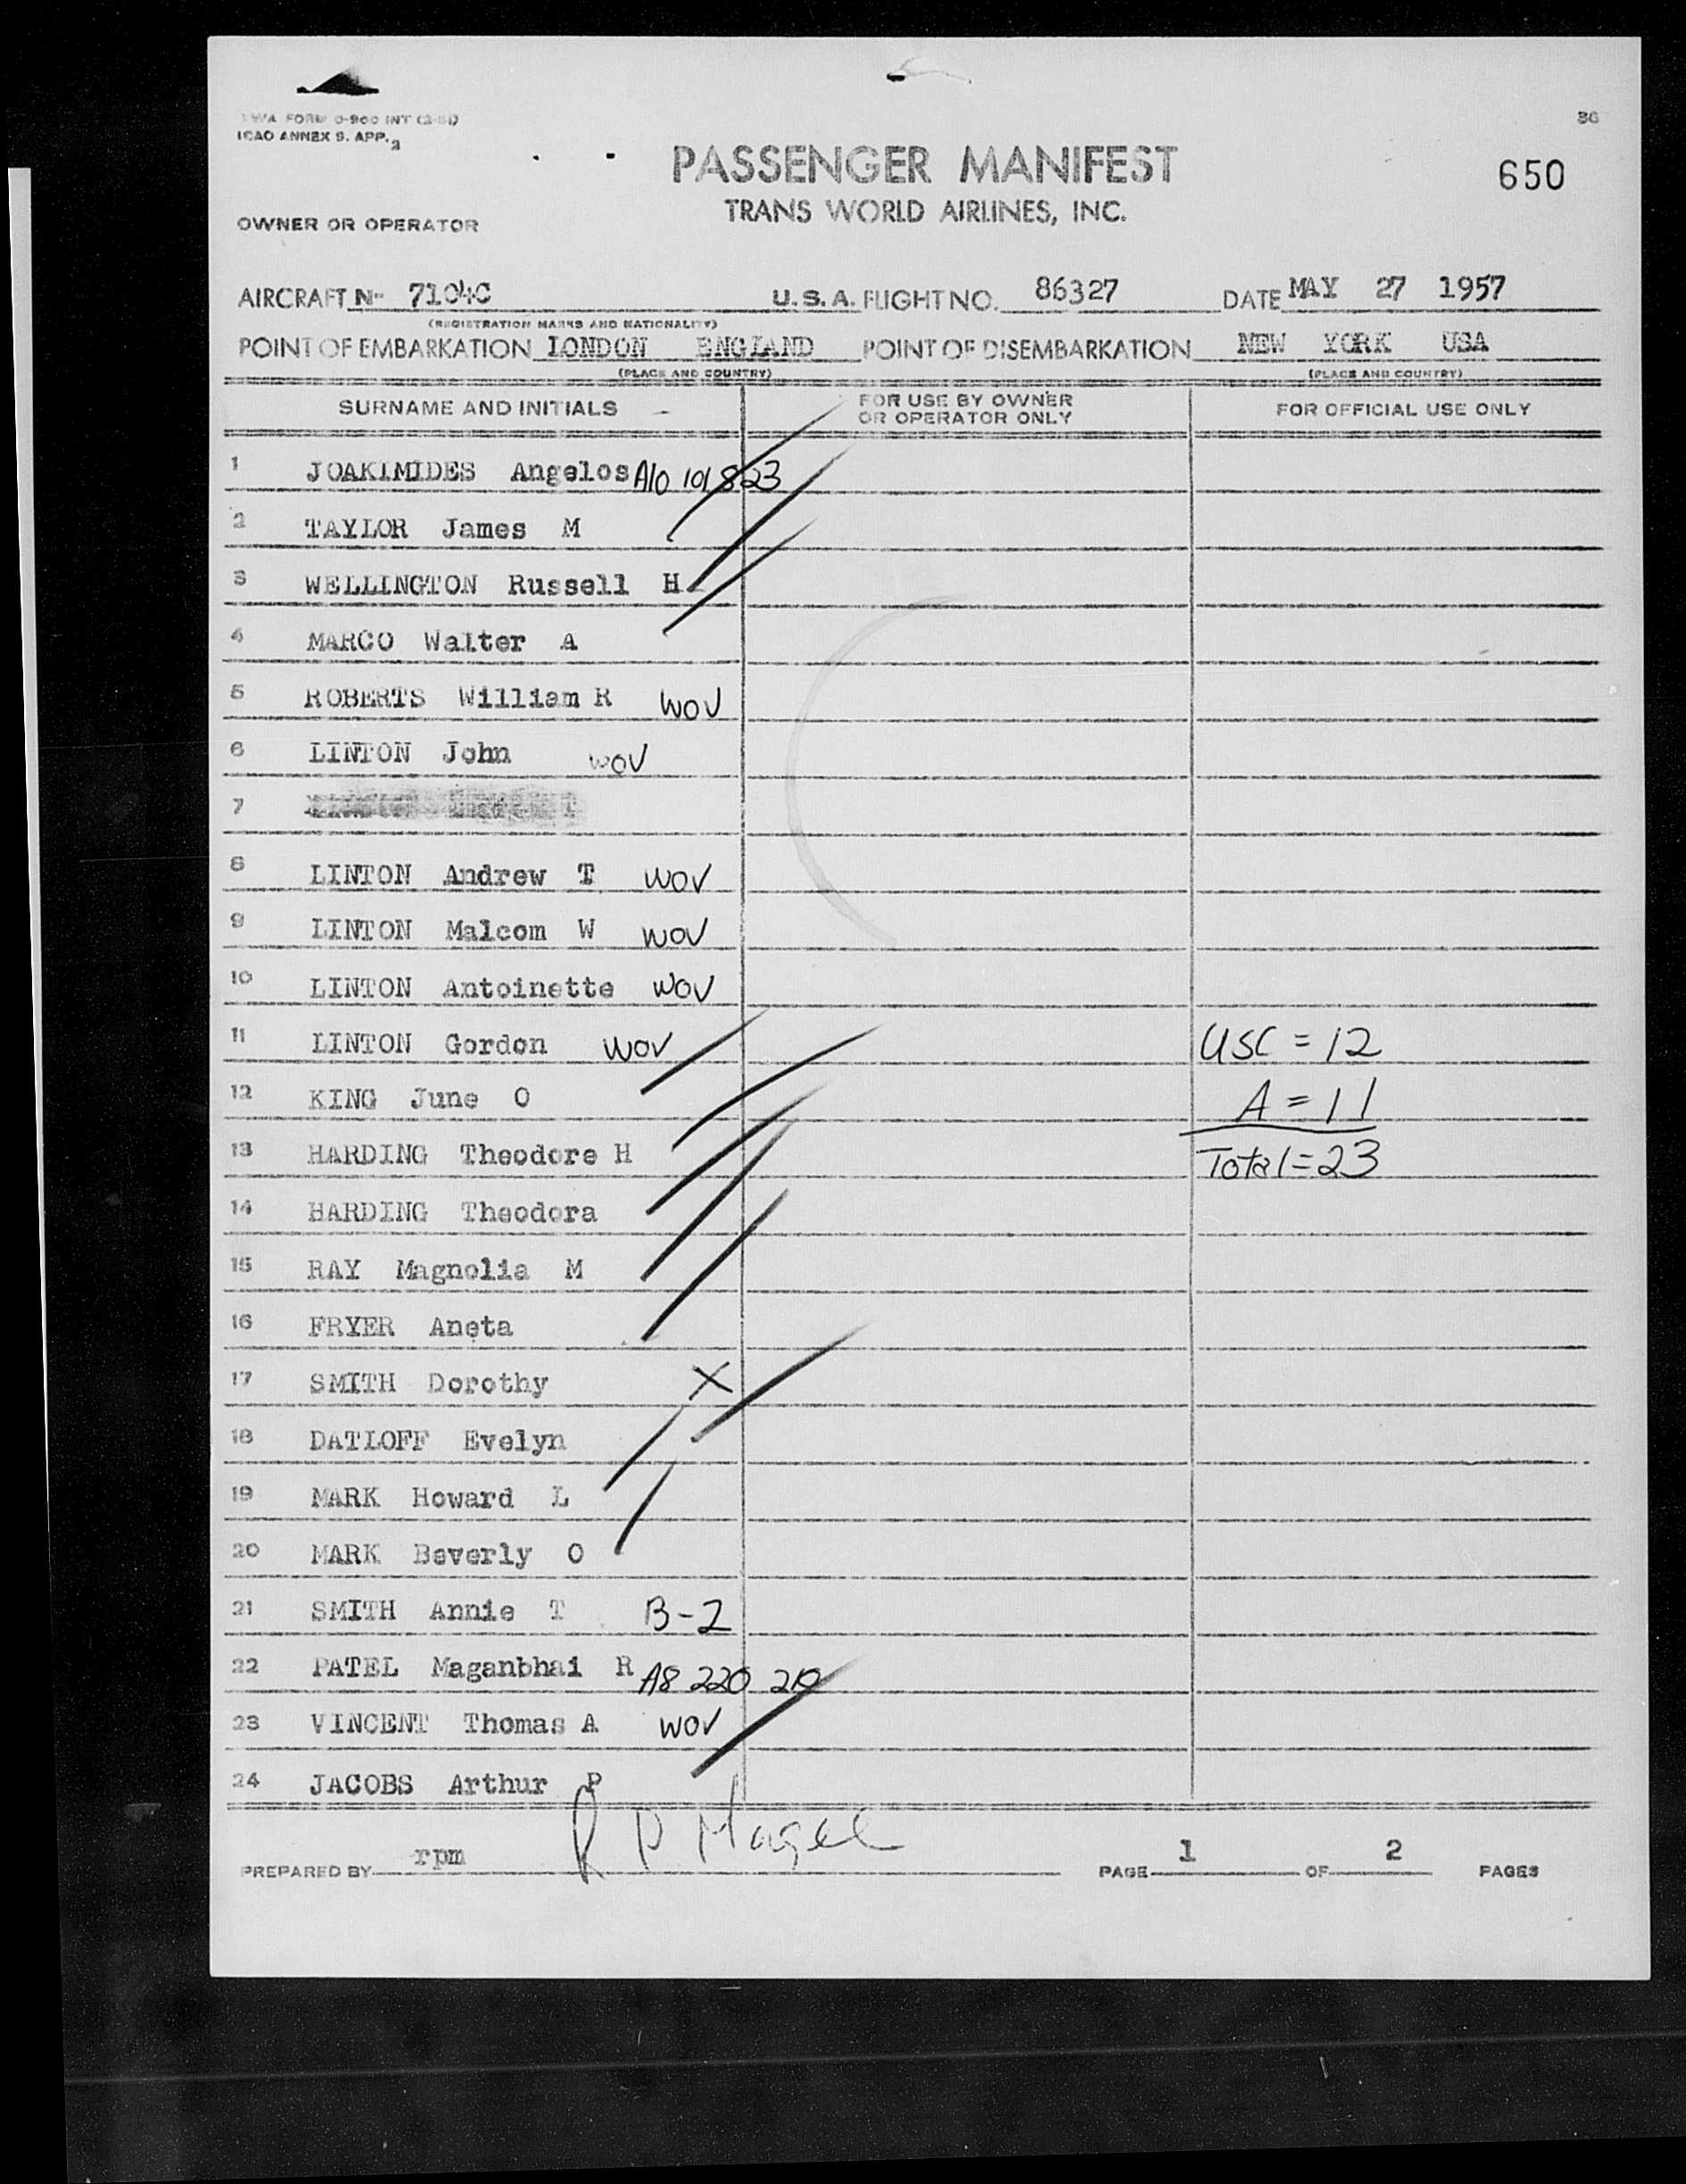 TWA FORM 0-900 INT (3-51)
ICAO ANNEX 9. APP. 2
36
PASSENGER MANIFEST
650
TRANS WORLD AIRLINES, INC.
OWNER OR OPERATOR
AIRCRAFT N- 7104C U.S.A. FLIGHT NO. 86327 DATE MAY 27 1957
(REGISTRATION MARKS AND NATIONALITY)
POINT OF EMBARKATION LONDON ENGLAND POINT OF DISEMBARKATION NEW YORK USA
(PLACE AND COUNTRY) (PLACE AND COUNTRY)
SURNAME AND INITIALS FOR USE BY OWNER OR OPERATOR ONLY FOR OFFICIAL USE ONLY
1 JOAKIMIDES Angelos A10 101 823
2 TAYLOR James M
3 WELLINGTON Russell H
4 MARCO Walter A
5 ROBERTS William R WOV
6 LINTON John WOV
7
8 LINTON Andrew T WOV
9 LINTON Malcom W WOV
10 LINTON Antoinette WOV
11 LINTON Gordon WOV USC = 12
12 KING June O A = 11
13 HARDING Theodore H Total = 23
14 HARDING Theodora
15 RAY Magnolia M
16 FRYER Aneta
17 SMITH Dorothy X
18 DATLOFF Evelyn
19 MARK Howard L
20 MARK Beverly O
21 SMITH Annie T B-2
22 PATEL Maganbhai R A8 220 210
23 VINCENT Thomas A WOV
24 JACOBS Arthur P
PREPARED BY rpm R P Magee PAGE 1 OF 2 PAGES